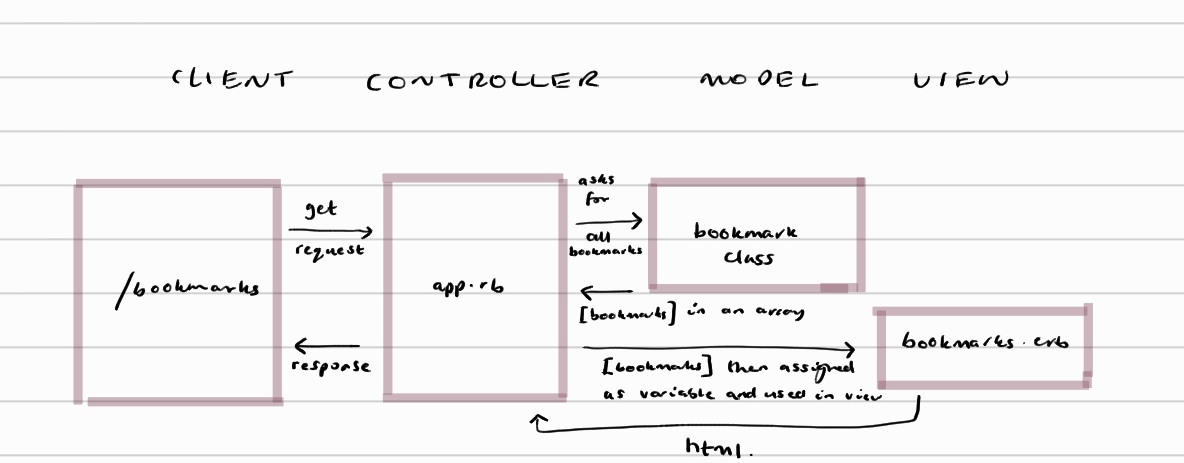 CLIENT CONTROLLER MODEL VIEW
/bookmarks
get
request
response
app.rb
asks
for
all
bookmarks
bookmark
class
[bookmarks] in an array
[bookmarks] then assigned
as variable and used in view
bookmarks.erb
html.